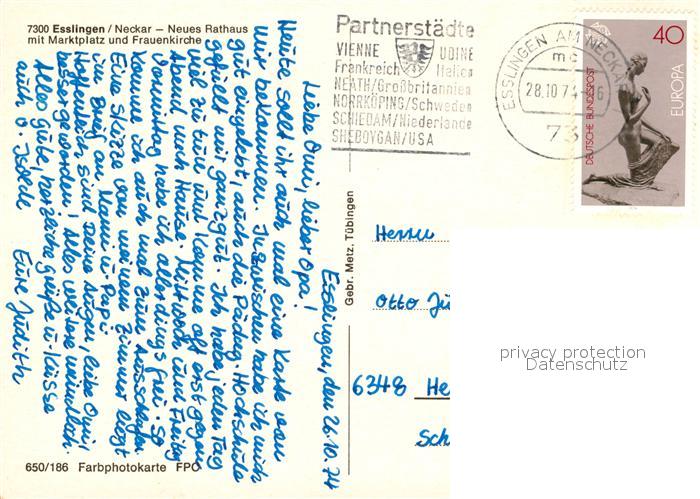 7300 Esslingen / Neckar – Neues Rathaus
mit Marktplatz und Frauenkirche
Esslingen, den 26.10.74
Liebe Omi, lieber Opa!
Heute sollt ihr auch mal eine Karte von
mir bekommen. Inzwischen habe ich mich
gut eingelebt, auch die Pädag. Hochschule
gefällt mir ganz gut. Ich habe jeden Tag
viel zu tun und komme oft erst gegen
Abend nach Hause. Mittwoch und Freitag
vormittag habe ich allerdings frei. So
komme ich auch mal zum Ausschlafen.
Eine Skizze von meinem Zimmer liegt
im Brief an Mami u. Papi.
Hoffentlich sind Deine Augen, liebe Omi,
besser geworden! Alles weitere mündlich.
Alles gute, herzliche grüße u. Küsse
auch v. Isolde Eure Judith
650/186 Farbphotokarte FPO
Gebr. Metz, Tübingen
Partnerstädte
VIENNE UDINE
Frankreich Italien
NEATH/Großbritannien
NORRKÖPING/Schweden
SCHIEDAM/Niederlande
SHEBOYGAN/USA
ESSLINGEN AM NECKAR
mc
28.10.74
73
40
DEUTSCHE BUNDESPOST
EUROPA
Herrn
Otto Jü
6348 He
Sch
privacy protection
Datenschutz